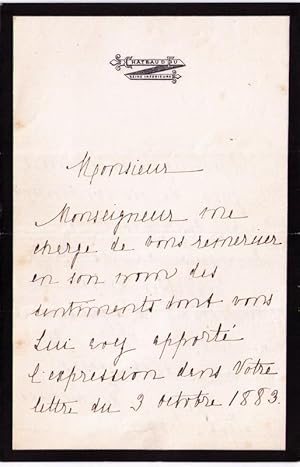 CHATEAU D'EU
SEINE INFERIEURE
Monsieur
Monseigneur me
charge de vous remercier
en son nom des
sentiments dont vous
Lui avez apporté
l'expression dans Votre
lettre du 3 octobre 1883.